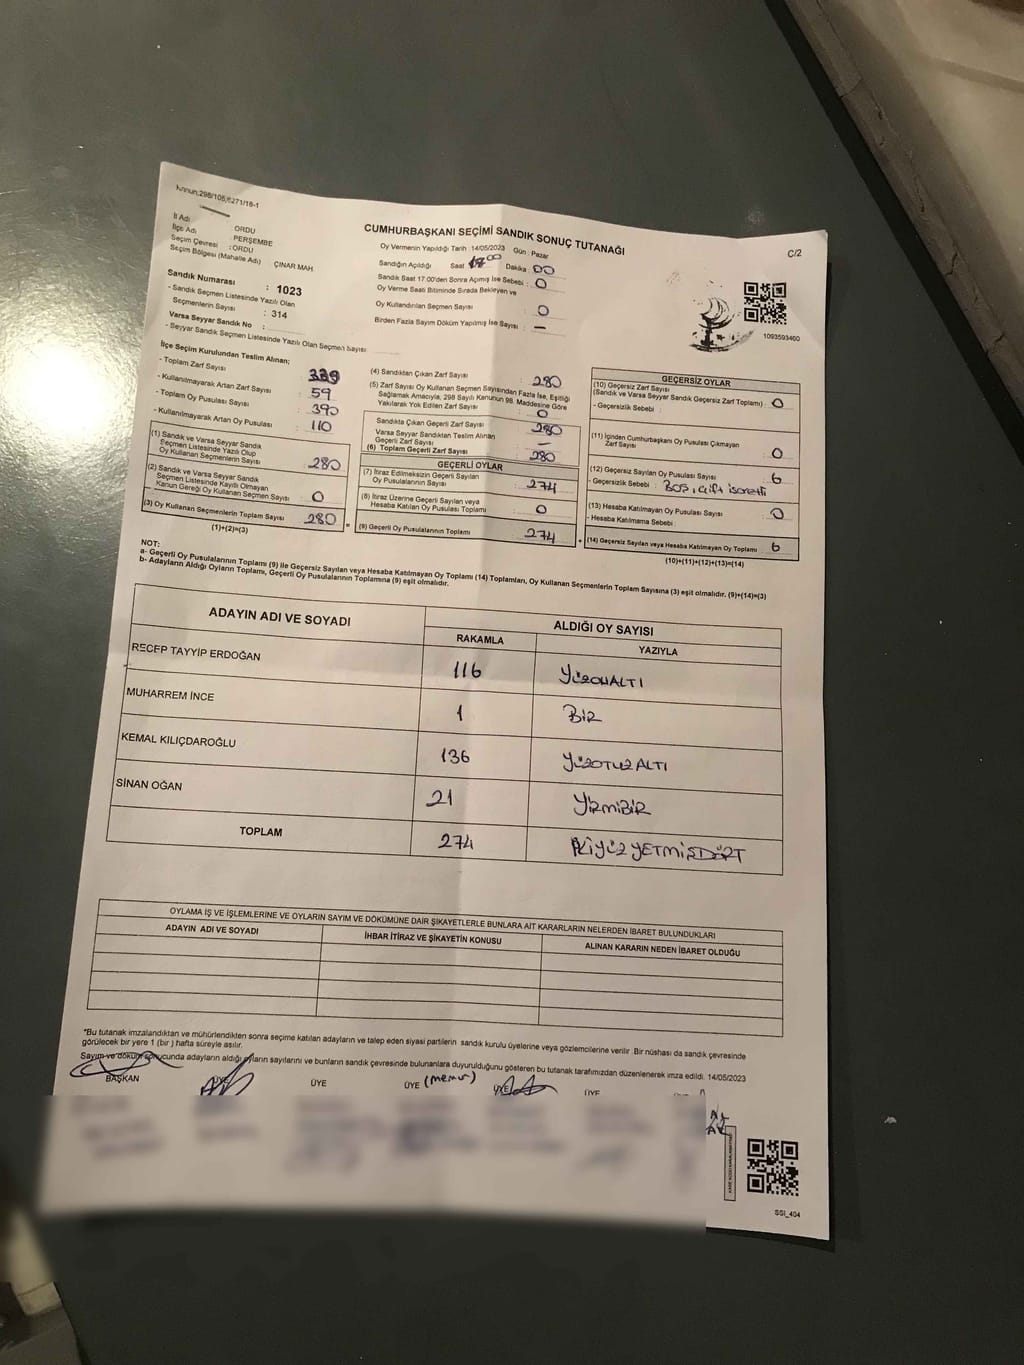 Kanun:298/105,6271/18-1
CUMHURBAŞKANI SEÇİMİ SANDIK SONUÇ TUTANAĞI
C/2
İl Adı : ORDU
İlçe Adı : PERŞEMBE
Seçim Çevresi : ORDU
Seçim Bölgesi (Mahalle Adı) : ÇINAR MAH.
Oy Vermenin Yapıldığı Tarih : 14/05/2023 Gün : Pazar
Sandığın Açıldığı Saat Dakika : 00
Sandık Saat 17.00'den Sonra Açılmış İse Sebebi : 0
Oy Verme Saati Bitiminde Sırada Bekleyen ve
Oy Kullandırılan Seçmen Sayısı : 0
Birden Fazla Sayım Döküm Yapılmış İse Sayısı : —
1093593460
Sandık Numarası : 1023
- Sandık Seçmen Listesinde Yazılı Olan
Seçmenlerin Sayısı : 314
Varsa Seyyar Sandık No :
- Seyyar Sandık Seçmen Listesinde Yazılı Olan Seçmen Sayısı
İlçe Seçim Kurulundan Teslim Alınan;
- Toplam Zarf Sayısı :
- Kullanılmayarak Artan Zarf Sayısı : 59
- Toplam Oy Pusulası Sayısı : 390
- Kullanılmayarak Artan Oy Pusulası : 110
(1) Sandık ve Varsa Seyyar Sandık
Seçmen Listesinde Yazılı Olup
Oy Kullanan Seçmenlerin Sayısı : 280
(2) Sandık ve Varsa Seyyar Sandık
Seçmen Listesinde Kayıtlı Olmayan
Kanun Gereği Oy Kullanan Seçmen Sayısı : 0
(3) Oy Kullanan Seçmenlerin Toplam Sayısı : 280
(1)+(2)=(3)
(4) Sandıktan Çıkan Zarf Sayısı : 280
(5) Zarf Sayısı Oy Kullanan Seçmen Sayısından Fazla İse, Eşitliği
Sağlamak Amacıyla, 298 Sayılı Kanunun 98. Maddesine Göre
Yakılarak Yok Edilen Zarf Sayısı : 0
Sandıkta Çıkan Geçerli Zarf Sayısı : 280
Varsa Seyyar Sandıktan Teslim Alınan
Geçerli Zarf Sayısı : —
(6) Toplam Geçerli Zarf Sayısı : 280
GEÇERLİ OYLAR
(7) İtiraz Edilmeksizin Geçerli Sayılan
Oy Pusulasının Sayısı : 274
(8) İtiraz Üzerine Geçerli Sayılan veya
Hesaba Katılan Oy Pusulası Toplamı : 0
(9) Geçerli Oy Pusulalarının Toplamı : 274
GEÇERSİZ OYLAR
(10) Geçersiz Zarf Sayısı
(Sandık ve Varsa Seyyar Sandık Geçersiz Zarf Toplamı) : 0
- Geçersizlik Sebebi :
(11) İçinden Cumhurbaşkanı Oy Pusulası Çıkmayan
Zarf Sayısı : 0
(12) Geçersiz Sayılan Oy Pusulası Sayısı : 6
- Geçersizlik Sebebi : BOŞ, Çift işaretli
(13) Hesaba Katılmayan Oy Pusulası Sayısı : 0
- Hesaba Katılmama Sebebi :
(14) Geçersiz Sayılan veya Hesaba Katılmayan Oy Toplamı : 6
(10)+(11)+(12)+(13)=(14)
NOT:
a- Geçerli Oy Pusulalarının Toplamı (9) ile Geçersiz Sayılan veya Hesaba Katılmayan Oy Toplamı (14) Toplamları, Oy Kullanan Seçmenlerin Toplam Sayısına (3) eşit olmalıdır. (9)+(14)=(3)
b- Adayların Aldığı Oyların Toplamı, Geçerli Oy Pusulalarının Toplamına (9) eşit olmalıdır.
ADAYIN ADI VE SOYADI ALDIĞI OY SAYISI
RAKAMLA YAZIYLA
RECEP TAYYİP ERDOĞAN 116 YÜZONALTI
MUHARREM İNCE 1 BİR
KEMAL KILIÇDAROĞLU 136 YÜZOTUZALTI
SİNAN OĞAN 21 YİRMİBİR
TOPLAM 274 İKİYÜZYETMİŞDÖRT
OYLAMA İŞ VE İŞLEMLERİNE VE OYLARIN SAYIM VE DÖKÜMÜNE DAİR ŞİKAYETLERLE BUNLARA AİT KARARLARIN NELERDEN İBARET BULUNDUKLARI
ADAYIN ADI VE SOYADI İHBAR İTİRAZ VE ŞİKAYETİN KONUSU ALINAN KARARIN NEDEN İBARET OLDUĞU
*Bu tutanak imzalandıktan ve mühürlendikten sonra seçime katılan adayların ve talep eden siyasi partilerin sandık kurulu üyelerine veya gözlemcilerine verilir. Bir nüshası da sandık çevresinde
görülecek bir yere 1 (bir) hafta süreyle asılır.
Sayım ve döküm sonucunda adayların aldığı oyların sayılarını ve bunların sandık çevresinde bulunanlara duyurulduğunu gösteren bu tutanak tarafımızdan düzenlenerek imza edildi. 14/05/2023
BAŞKAN ÜYE ÜYE ÜYE (memur) ÜYE ÜYE
SSI_404